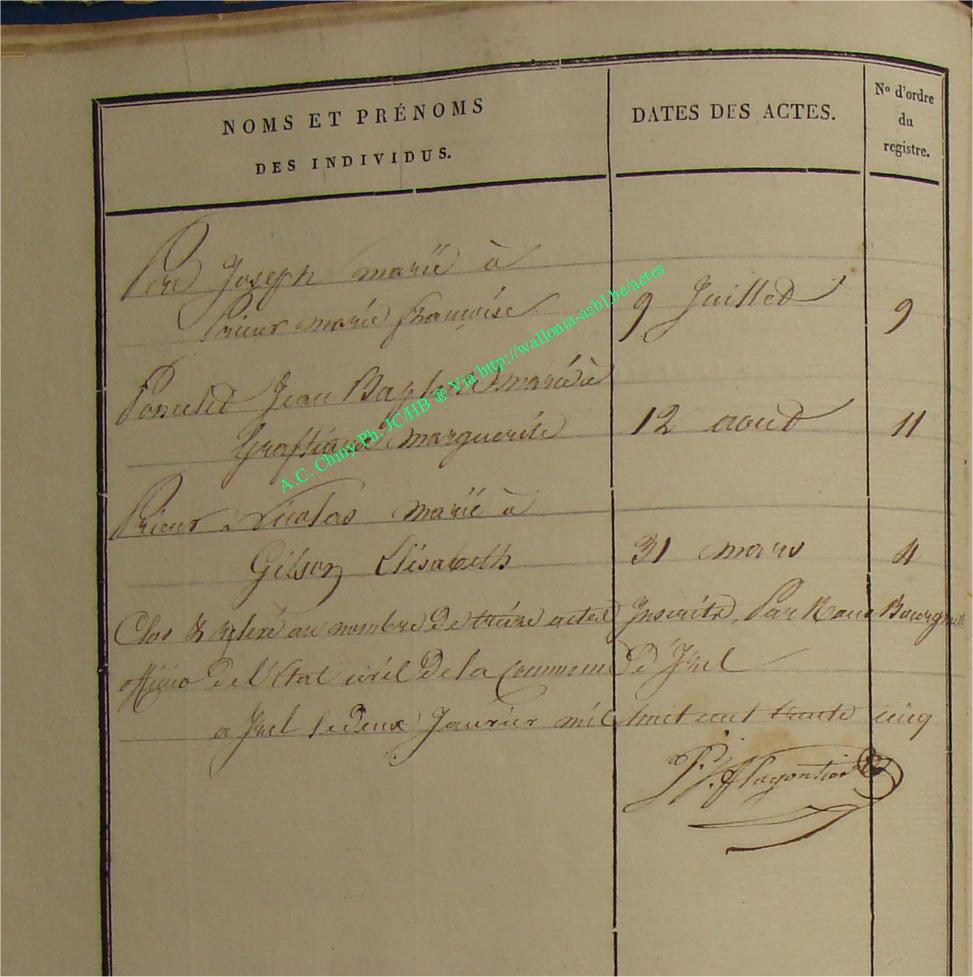 NOMS ET PRÉNOMS
DES INDIVIDUS.
DATES DES ACTES.
Nº d'ordre
du
registre.
Peré Joseph marié à
Prieur marie françoise 9 Juillet 9
Poncelet Jean Baptiste marié à
marguerite 12 aout 11
Prieur Nicolas marié à
Gilson Elisabeth 31 mars 4
Clos & au nombre de treize actes Inscrits, Par Nous Bourgmestre
officier de l'Etat civil de la Commune d'Izel
a Izel le deux Janvier mil huit cent trente cinq
A.C. Chiny Ph. JC/HB ® Via http://wallonia-asbl.be/actes